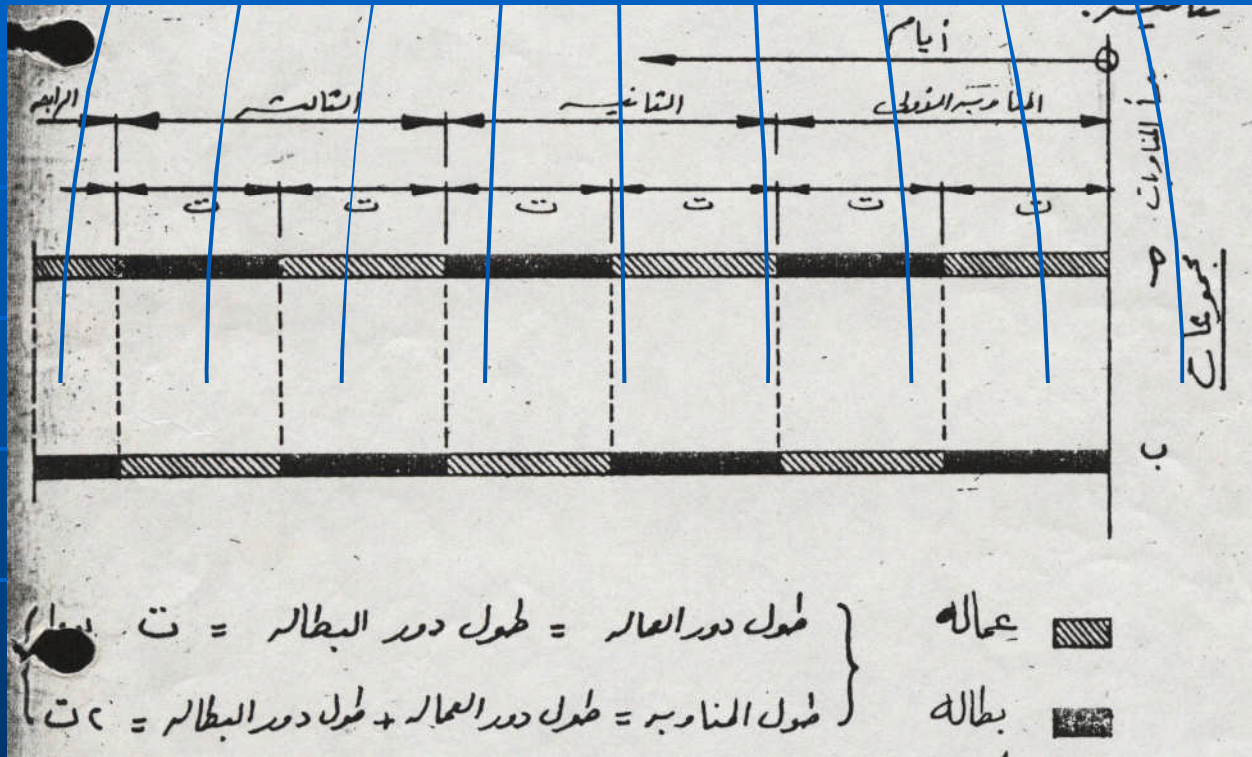 أيام
المناوبه الأولى الثانيه الثالثه الرابعه
ت ت ت ت ت ت
بدأ المناوبات
مجموعات
ب
عماله
طول دور العماله = طول دور البطاله = ت
بطاله
طول المناوبه = طول دور العماله + طول دور البطاله = ٢ ت